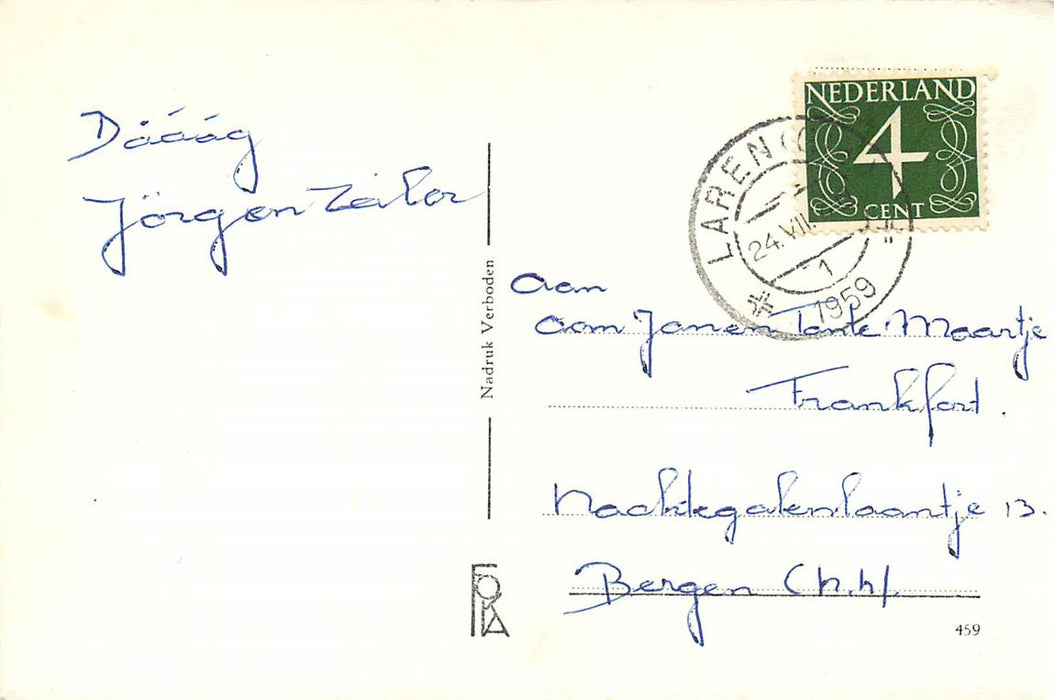 Dáááág
Jörgen
Nadruk Verboden
NEDERLAND
4
CENT
LAREN
24.VII
1
1959
aan
oom Jan en Tante Maartje
Frankfort.
Nachtegalenlaantje 13.
Bergen (n.h).
FOKA
459